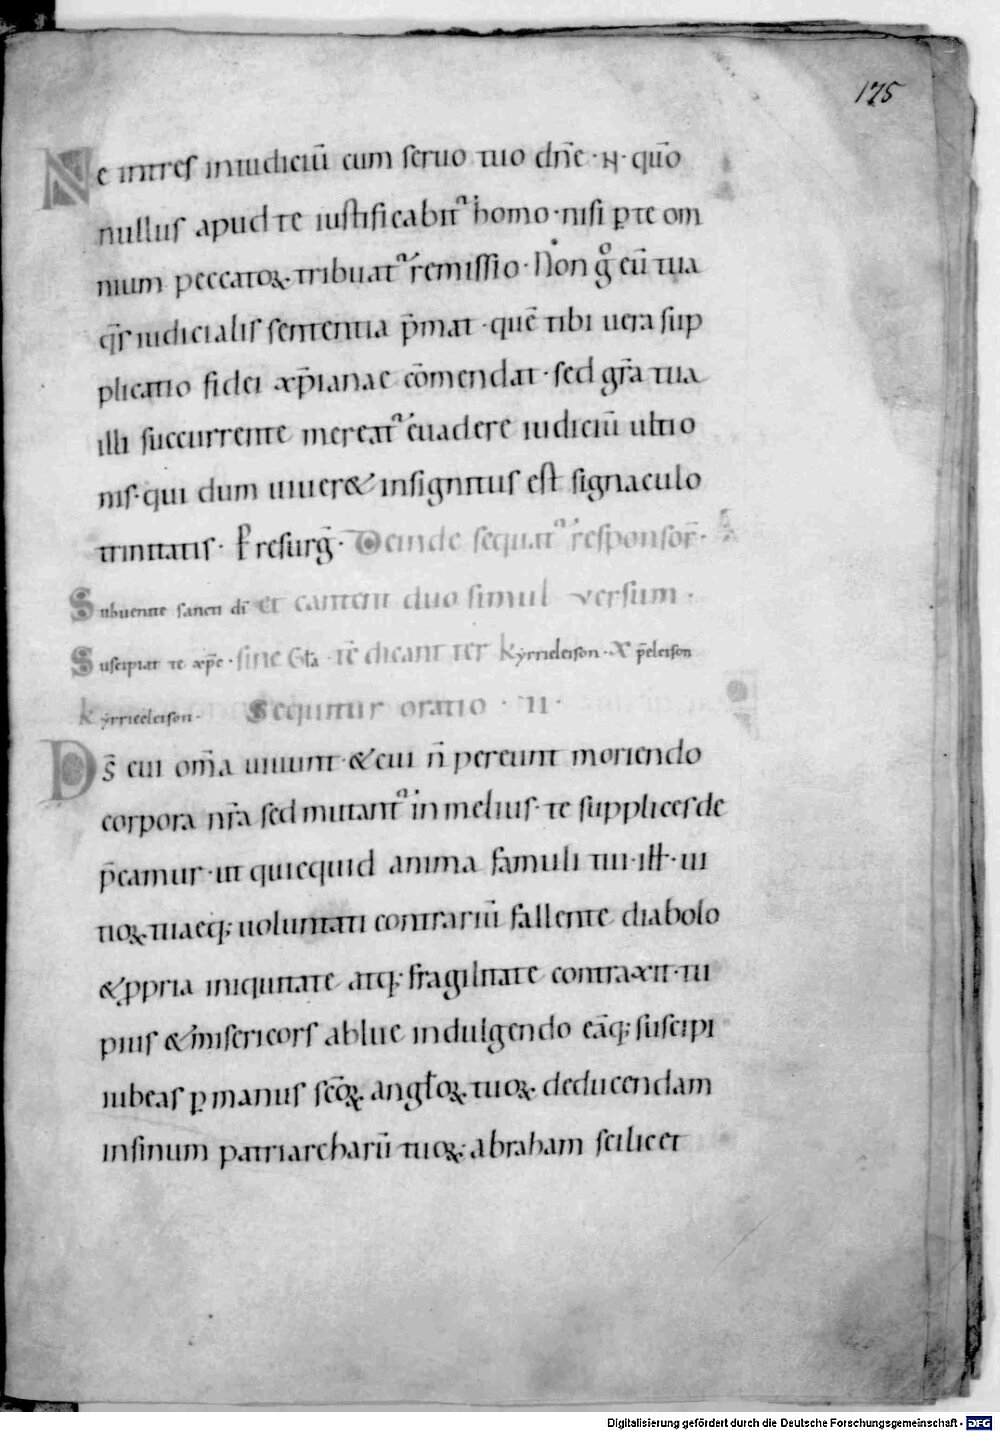 175
Ne intres in iudiciū cum seruo tuo dn̄e · N · qm̄o
nullus apud te iustificabit᷑ homo · nisi ꝑ te om
nium peccatoꝝ tribuat᷑ remissio · Non gͦ eū tua
q̄s iudicialis sententia p̄mat · quē tibi uera sup
plicatio fidei xp̄ianae cōmendat · sed gr̄a tua
illi succurrente mereat᷑ euadere iudiciū ultio
nis · qui dum uiuer& insignitus est signaculo
trinitatis · P̄ resurg̅ · Deinde sequat᷑ responsor̄ ·
Subuenite sancti dī et cantent duo simul versum ·
Suscipiat te xp̄c · sine Gl̄a · Tē dicant ter kyrrieleison · X p̄eleison
kyrrieeleison · Sequitur oratio · II ·
Ds̄ cui om̄a uiuunt · & cui n̄ pereunt moriendo
corpora nr̄a sed mutant᷑ in melius · te supplices de
p̄camur · ut quicquid anima famuli tui · ill · ui
tioꝝ tuaeq; uoluntati contrariū fallente diabolo
& ꝓpria iniquitate atq; fragilitate contraxit · tu
pius & misericors ablue indulgendo eāq; suscipi
iubeas ꝑ manus sc̄oꝝ angl̄oꝝ tuoꝝ deducendam
in sinum patriarcharū tuoꝝ · abraham scilicet
Digitalisierung gefördert durch die Deutsche Forschungsgemeinschaft - DFG